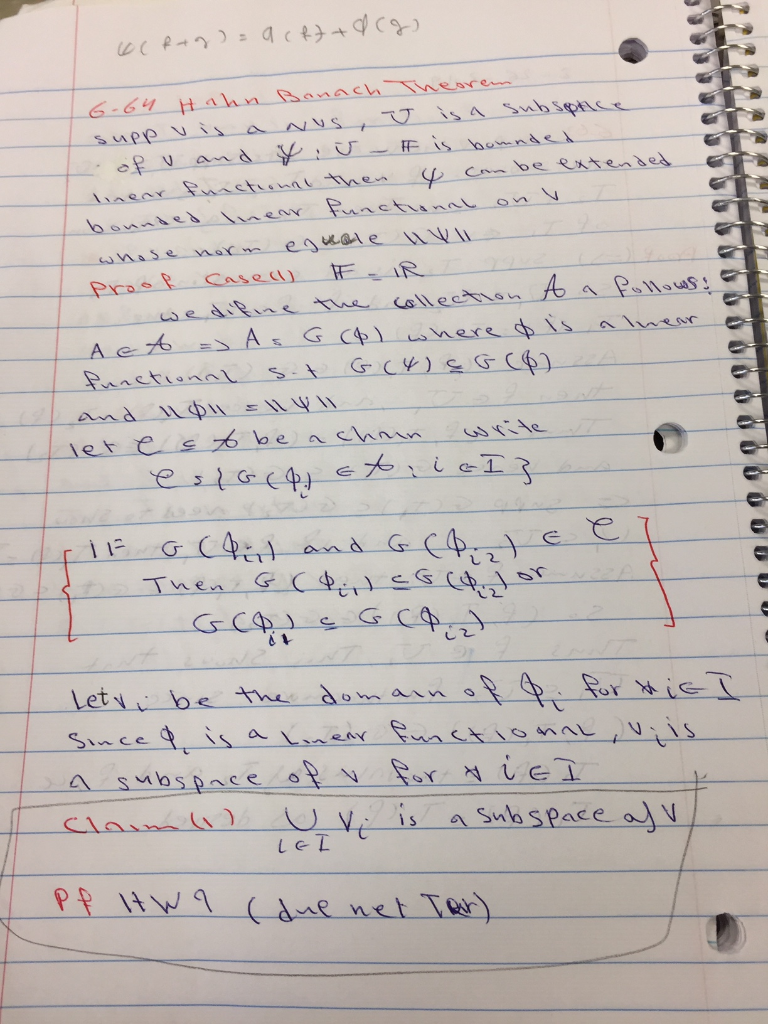 φ(f+g) = φ(f)+φ(g)
6-64 Hahn Banach Theorem
supp V is a NVS, U is a subspace
of V and Ψ: U - F is bounded
linear functional then ψ can be extended
bounded linear functional on V
whose norm equale ||Ψ||
Proof Case(1) F = IR
we difine the collection A a follows:
A ∈ A => A = G(ϕ) where ϕ is a linear
functional s.t G(ψ) ⊆ G(ϕ)
and ||ϕ|| = ||Ψ||
let C ⊆ A be a chain write
C = { G(ϕi) ∈ A : i ∈ I }
IF G(ϕi1) and G(ϕi2) ∈ C
Then G(ϕi1) ⊆ G(ϕi2) or
G(ϕi1) ⊆ G(ϕi2)
Let vi be the domain of ϕi for ∀ i ∈ I
since ϕi is a Linear functional, vi is
a subspace of v for ∀ i ∈ I
Claim(1) ∪ Vi is a subspace of V
i ∈ I
Pf HW 9 (due net)